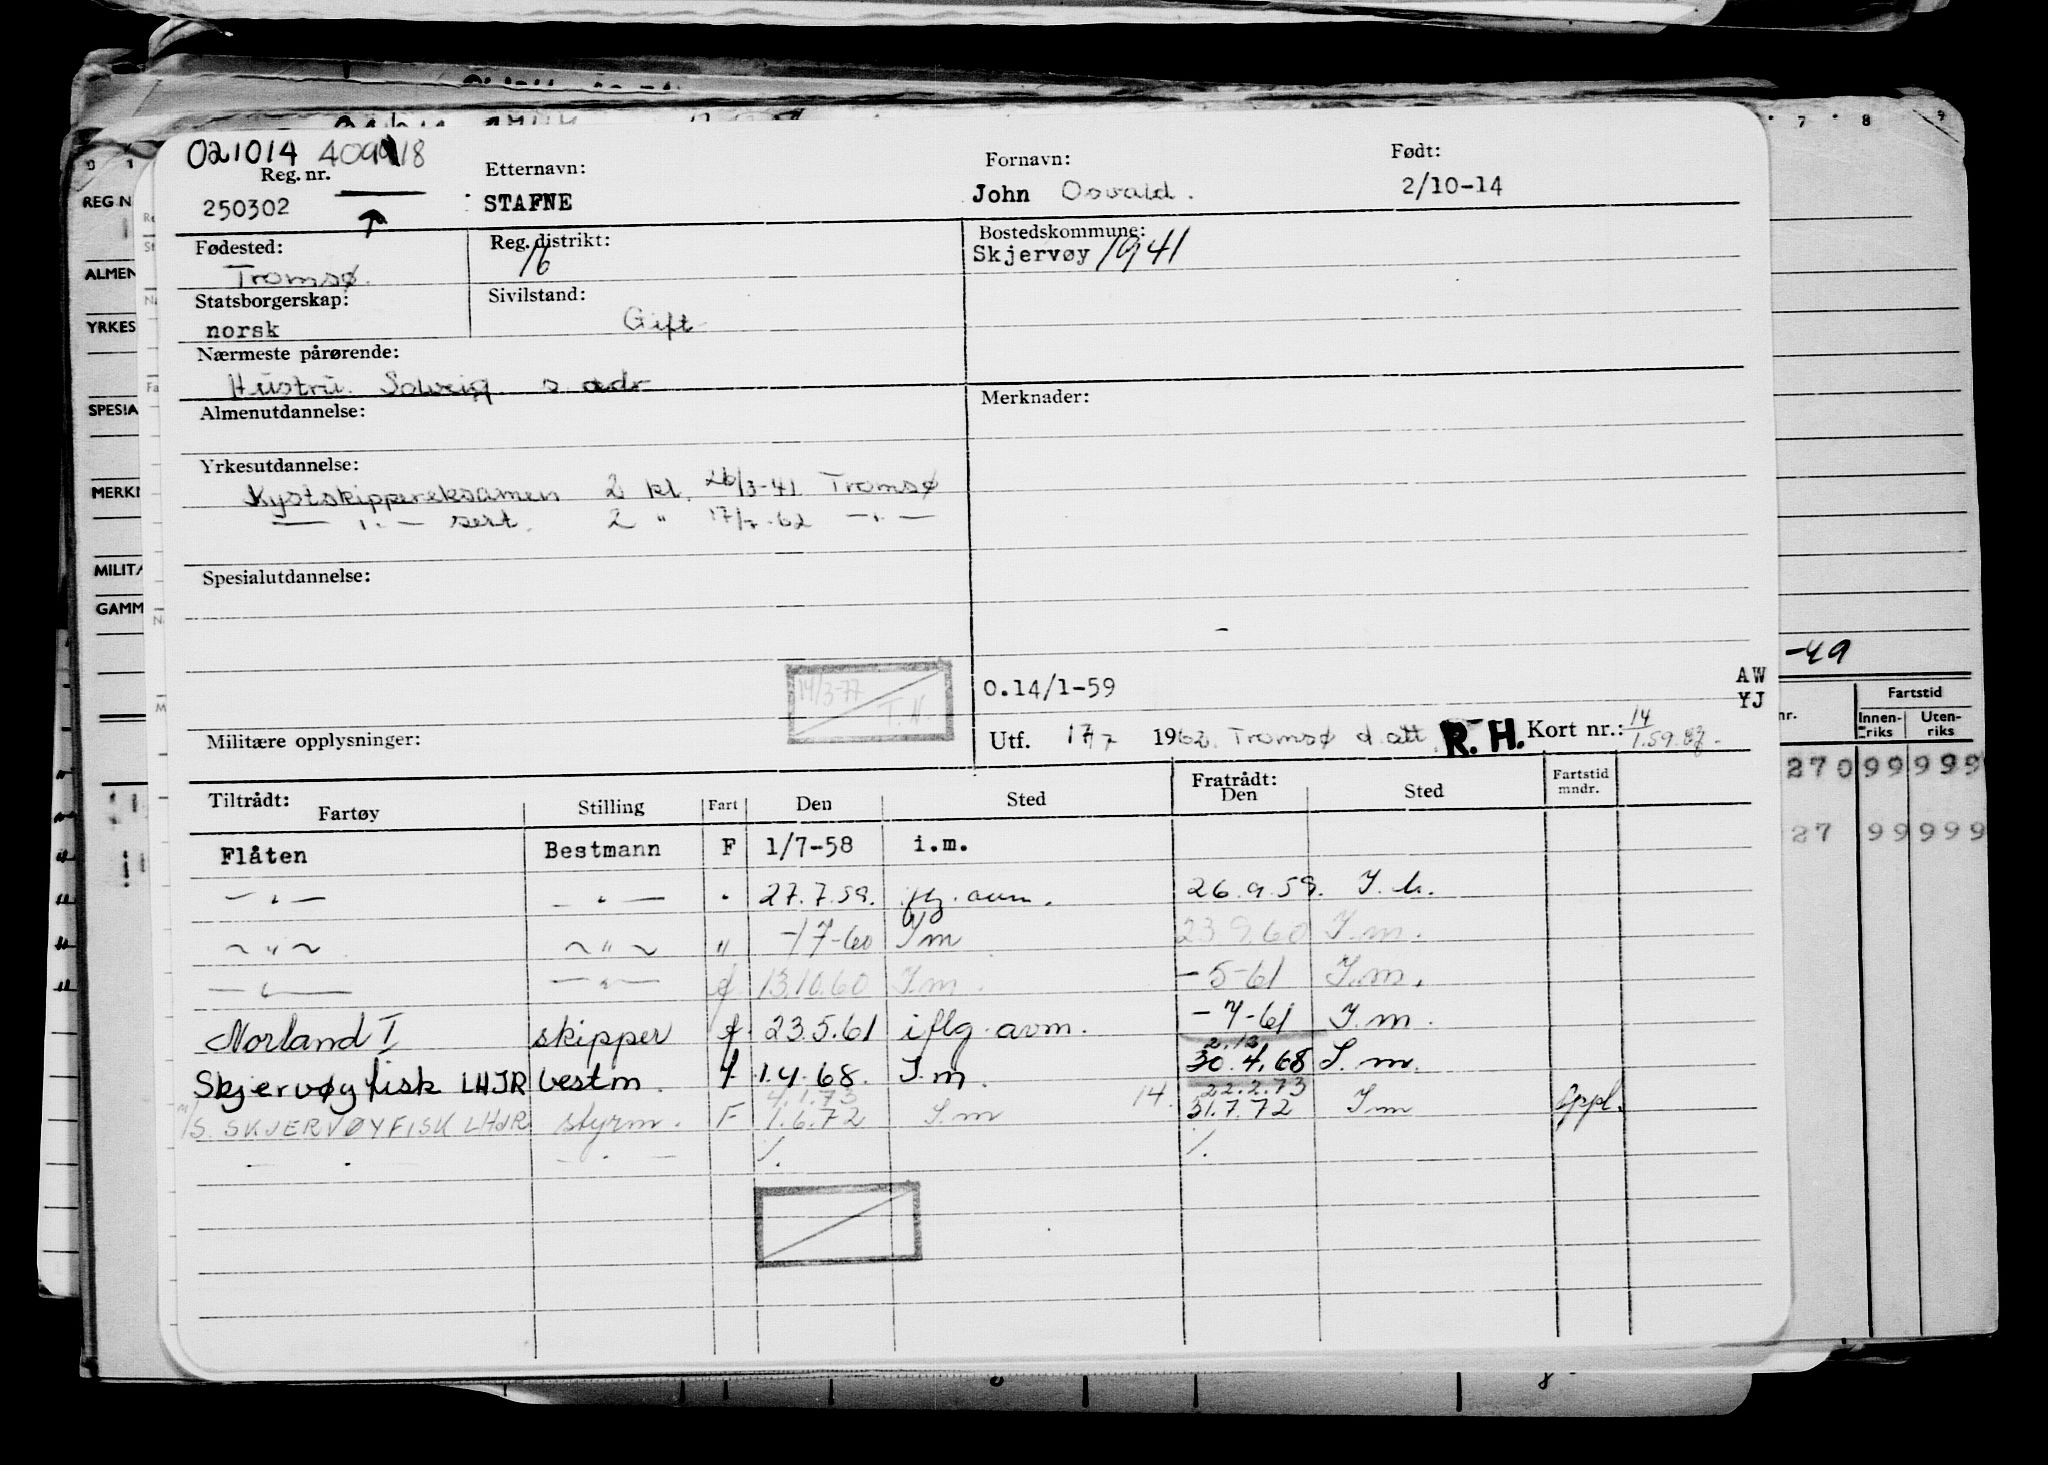 021014 409918
Reg. nr.
250302
Etternavn:
STAFNE
Fornavn:
John Osvald.
Født:
2/10-14
Fødested:
Tromsø.
Reg. distrikt:
16
Bostedskommune:
Skjervøy 1941
Statsborgerskap:
norsk
Sivilstand:
Gift
Nærmeste pårørende:
Hustru. Solveig s. adr
Almenutdannelse:
Merknader:
Yrkesutdannelse:
Kystskippereksamen 2 kl. 26/3-41 Tromsø
— " — sert. 2 " 17/7-62 — " —
Spesialutdannelse:
14/3-77
T.N.
O.14/1-59
AW
YJ
Militære opplysninger:
Utf. 17/7 1962. Tromsø d. att. R. H. Kort nr.: 14/1.59.
Tiltrådt:
Fartøy Stilling Fart Den Sted
Fratrådt:
Den Sted
Fartstid
mndr.
Flåten Bestmann F 1/7-58 i.m.
— " — — " — " 27.7.59. iflg. avm. 26.9.59. I.m.
~ " ~ ~ " ~ " -17-60 I m 23.9.60 I.m.
— " — — " — f 13.10.60 I.m. -5-61 I.m.
Norland I skipper f. 23.5.61 iflg. avm. -7-61 I.m.
2.13
Skjervøyfisk LHJR bestm. f 1.4.68. I.m. 30.4.68 I.m.
4.1.73 14. 22.2.73
M/S. SKJERVØYFISK LHJR styrm. F 1.6.72 I.m 31.7.72 I m Oppl.
— " — — " — /. /.
REG N
ALMEN
YRKES
SPESIA
MERKN
MILITÆ
GAMM
7 8 9
-49
nr.
Fartstid
Innen-
riks
Uten-
riks
270 99 999
27 99 999
8